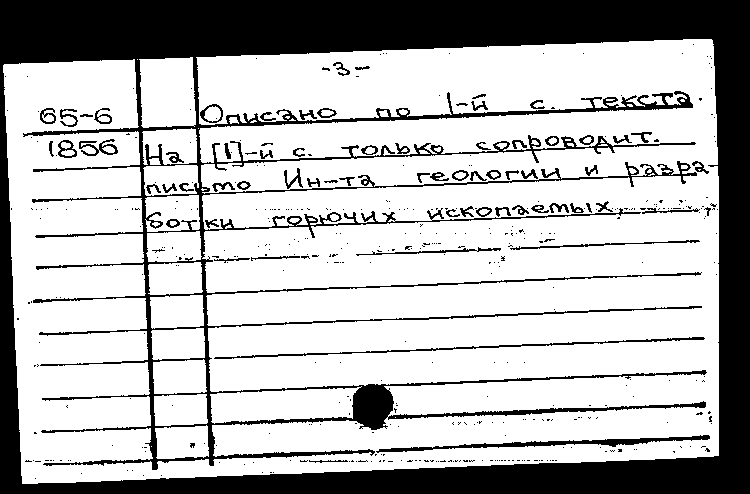 -3-
65-6 Описано по 1-й с. текста.
1856 На [1]-й с. только сопроводит.
письмо Ин-та геологии и разра-
ботки горючих ископаемых,